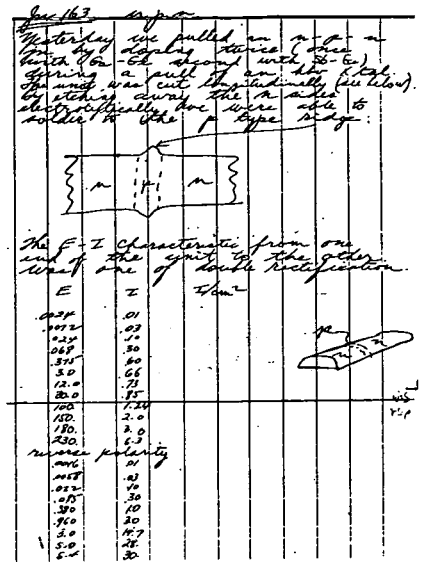 Jan 163 n-p-n
Yesterday we pulled an n-p-n
in by doping twice (once
with Ga-Ge second with Sb-Ge)
during a pull of an xtal.
The unit was cut longitudinally (see below).
By etching away the n sides
electrolytically we were able to
solder to the p type ridge.
n p n
The E-I Characteristic from one
end of the unit to the other
was one of double rectification.
E I I/cm²
.0024 .01
.0072 .03
.024 .10
.068 .30
.375 .60
3.0 .66
12.0 .73
30.0 .85
100. 1.24
150. 2.0
180. 3.0
230. 6.3
reverse polarity
.0046 .01
.0058 .03
.022 .10
.085 .30
.380 10
.960 20
3.0 14.7
5.0 28.
6.4 30.
p
n n